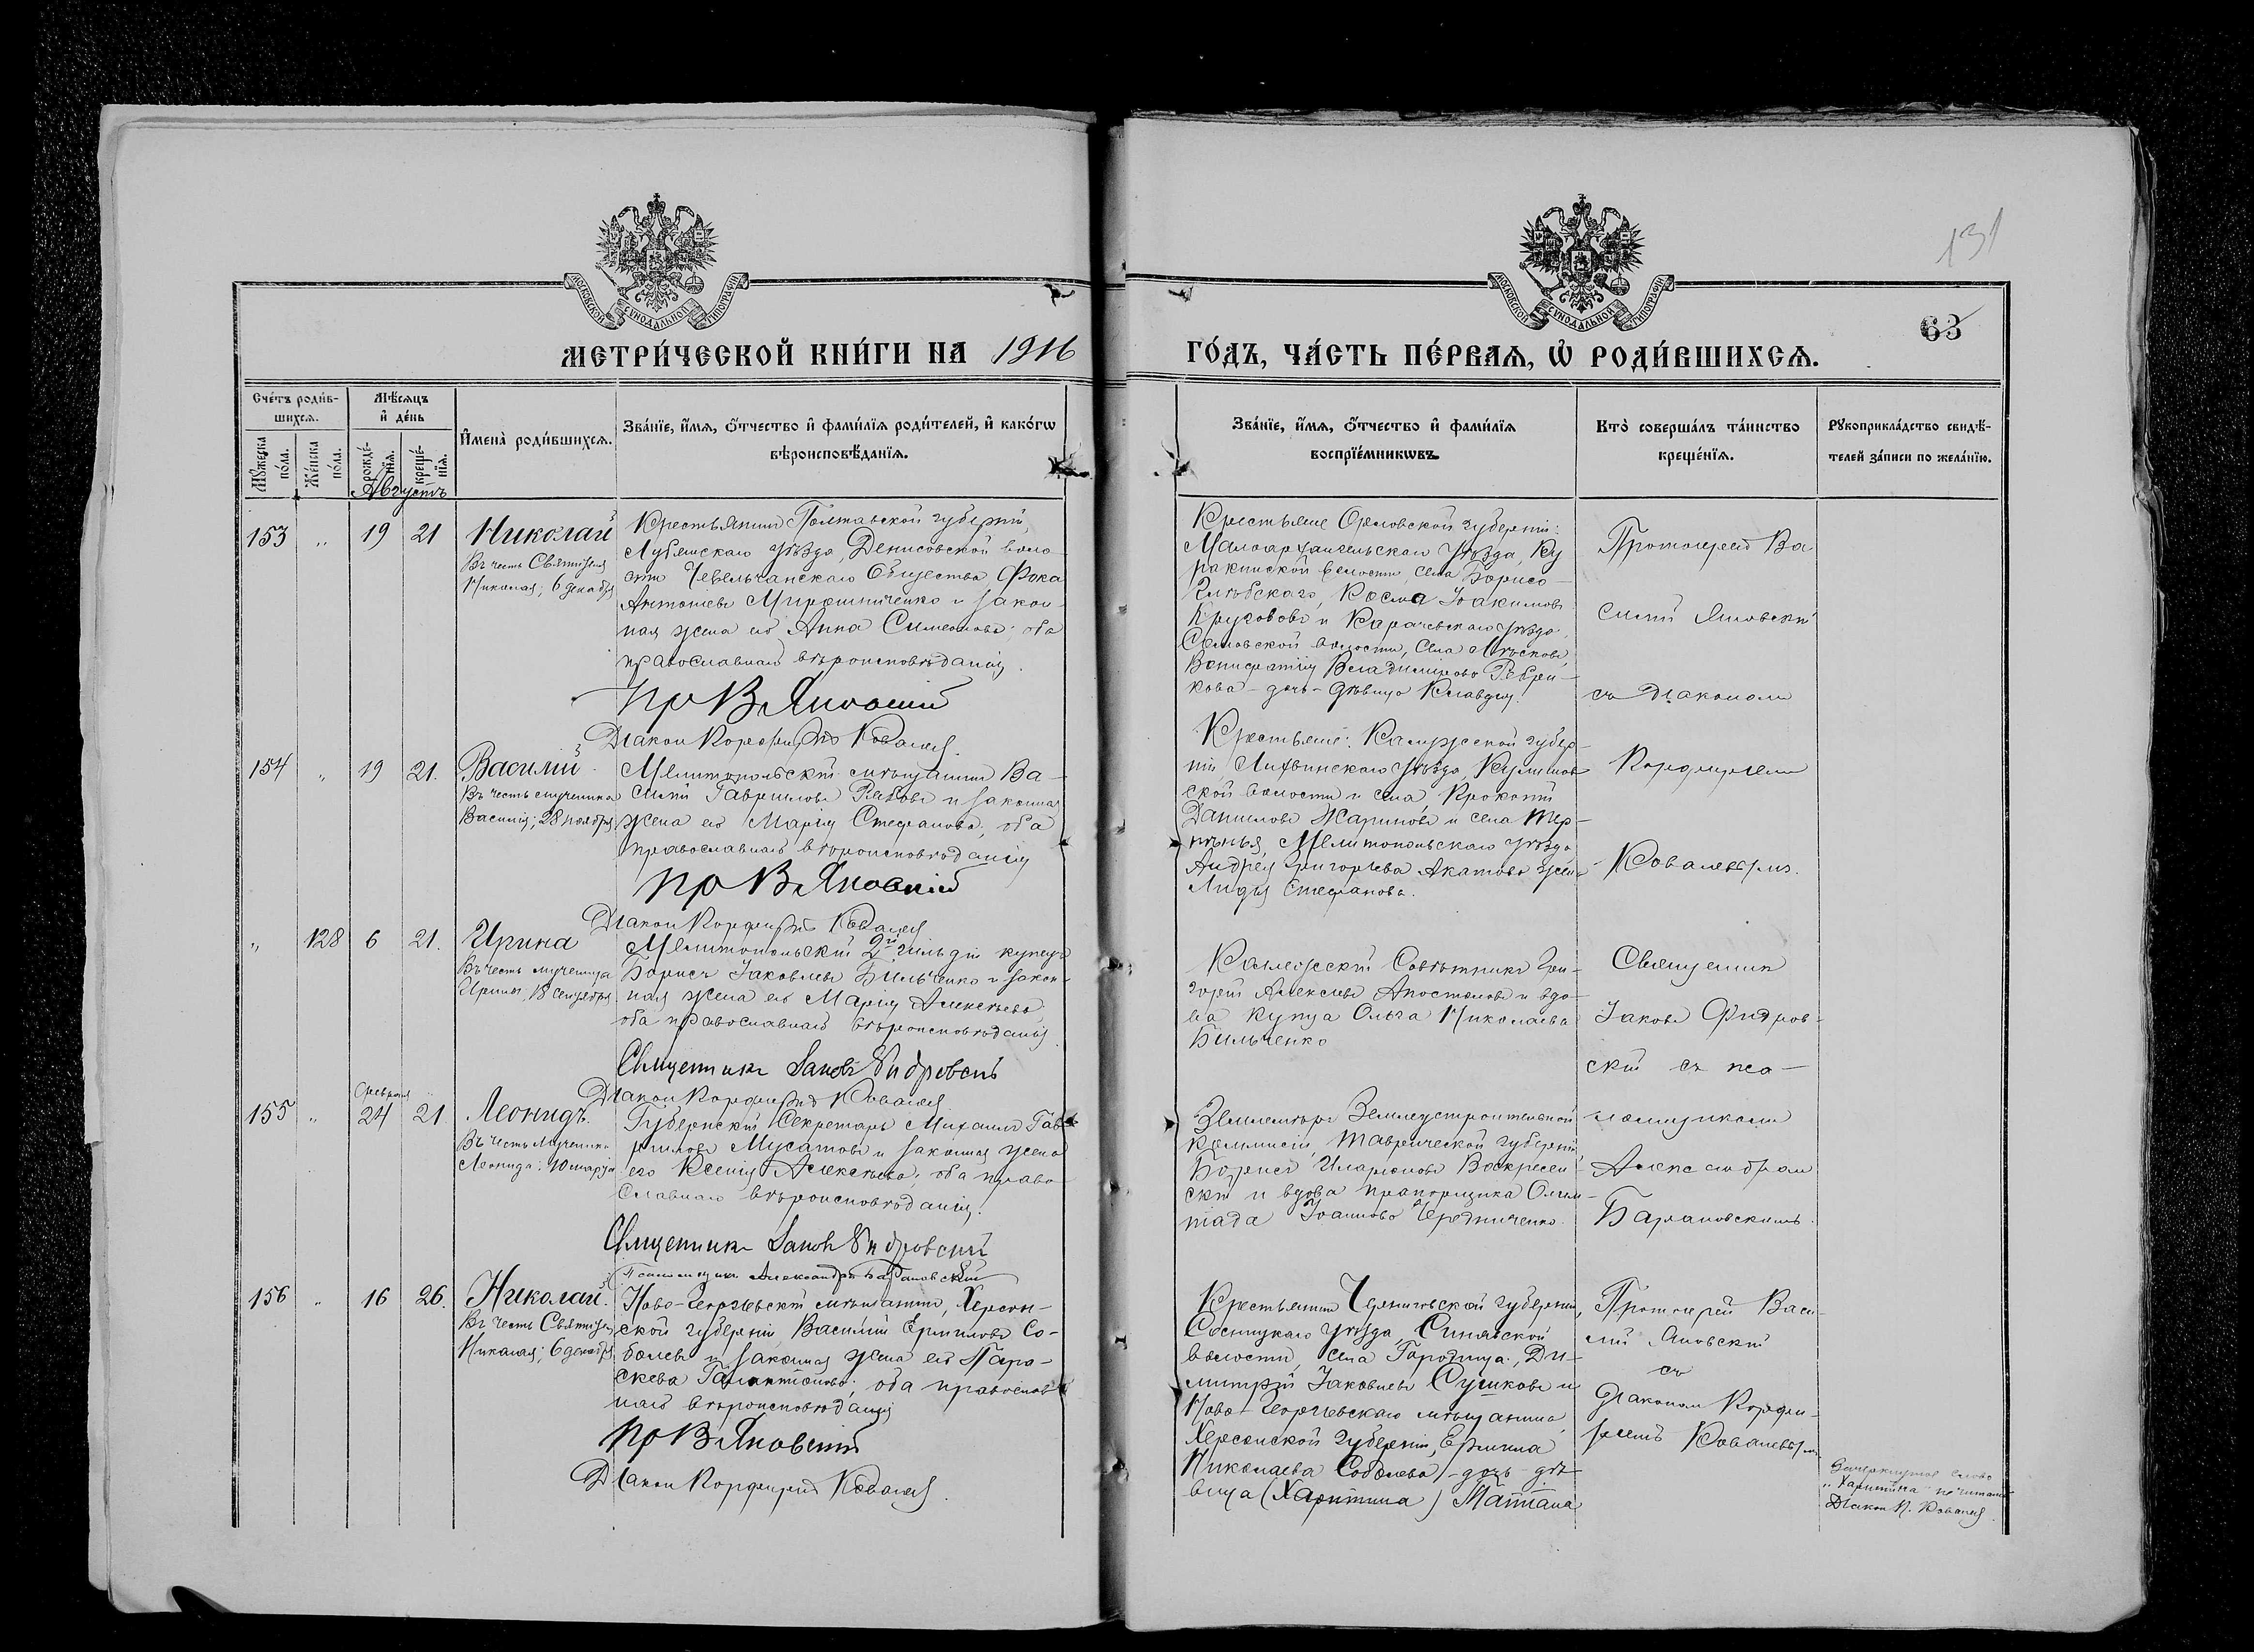 131
63
МОСКОВСКОЙ СѴНОДАЛЬНОЙ ТИПОГРАФІИ
МОСКОВСКОЙ СѴНОДАЛЬНОЙ ТИПОГРАФІИ
МЕТРИ́ЧЕСКОЙ КНИ́ГИ НА 1916
ГО́ДЪ, ЧА́СТЬ ПЕ́РВАЯ, Ѡ РОДИ́ВШИХСЯ.
Сче́тъ роди́в-
шихся.
Мужеска по́ла.
Же́нска по́ла.
Мѣ́сяцъ
и де́нь
рожде́-
нія.
креще́-
нія.
Августъ
Имена̀ роди́вшихся.
Зва́ніе, и́мя, о́тчество и фами́лія роди́телей, и како́гѡ
вѣроисповѣ́данія.
Зва́ніе, и́мя, о́тчество и фами́лія
воспріе́мникѡвъ.
Кто̀ соверша́лъ та́инство
креще́нія.
Рукоприкла́дство свидѣ́-
телей за́писи по жела́нію.
153 „ 19 21 Николай
Въ честь Святителя
Николая; 6 декабря
Крестьянинъ Полтавской губерніи,
Лубенскаго уѣзда, Денисовской воло-
сти Чевельчанскаго Общества, Фока
Антоніевъ Мирошниченко и закон-
ная жена его Анна Симеонова; оба
православнаго вѣроисповѣданія.
Пр В Яновскій
Діаконъ Порфирій Ковалевъ.
Крестьяне Орловской губерніи:
Малоархангельскаго уѣзда, Ку
ракинской волости, села Борисо-
Глѣбскаго, Косма Іоакимовъ
и Карачевскаго уѣзда,
волости, села
Владимірова Ребри-
кова - дочь - дѣвица Клавдія.
Протоіерей Ва
силій Яновскій
съ Діакономъ
154 „ 19 21. Василій
Въ честь мученика
Василія; 28 ноября.
Мелитопольскій мѣщанинъ Ва-
силій Гавриловъ Рябовъ и законная
жена его Марія Стефанова; оба
православнаго вѣроисповѣданія
Пр В Яновскій
Діаконъ Порфирій Ковалевъ
Крестьяне: Калужской губер-
ніи, Лихвинскаго уѣзда,
ской волости и села, Прокопій
Даниловъ Жариновъ и села Тер-
пѣнья, Мелитопольскаго уѣзда
Андрея Григорьева Акатова жена
Лидія Стефанова.
Порфиріемъ
Ковалевымъ.
„ 128 6 21. Ирина
Въ честь мученицы
Ирины, 18 сентября.
Мелитопольскій 2й гильдіи купецъ
Борисъ Іаковлевъ Бильченко и закон-
ная жена его Марія Алексѣева,
оба православнаго вѣроисповѣданія.
Священникъ Іаковъ Фидровскій
Діаконъ Порфирій Ковалевъ
Коллежскій Совѣтникъ Гри-
горій Алексѣевъ Апостоловъ и вдо-
ва купца Ольга Николаева
Бильченко
Священникъ
Іаковъ Фидров-
скій съ пса-
155 „ Февраля 24 21 Леонидъ.
Въ честь Мученика
Леонида; 10 марта
Губернскій Секретарь Михаилъ Гав-
риловъ Мусатовъ и законная жена
его Ксенія Алексѣева; оба право-
славнаго вѣроисповѣданія.
Священникъ Іаковъ Фидровскій
Псаломщикъ Александръ Барановскій
Землемѣръ Землеустроительной
Коммисіи, Таврической губерніи,
Борисъ Иларіоновъ Воскресен-
скій и вдова прапорщика Олим-
піада Іоаннова Чередниченко.
ломщикомъ
Александромъ
Барановскимъ.
156 „ 16 26. Николай.
Въ честь Святителя
Николая; 6 декабря
Ново-Георгіевскій мѣщанинъ, Херсон-
ской губерніи, Василій Ермиловъ Со-
болевъ и законная жена его Пара-
скева Галактіонова; оба православ-
наго вѣроисповѣданія
Пр В Яновскій
Діаконъ Порфирій Ковалевъ.
Крестьянинъ Черниговской губерніи,
Сосницкаго уѣзда, Синявской
волости, села Городища, Ди-
митрій Іаковлевъ Сушковъ и
Ново-Георгіевскаго мѣщанина
Херсонской губерніи, Ермила
Николаева Соболева - дочь - дѣ-
вица (Харитина) Татіана
Протоіерей Васи-
лій Яновскій
съ
Діакономъ Порфи-
ріемъ Ковалевымъ
Зачеркнутое слово
„Харитина" не читать
Діаконъ П. Ковалевъ.